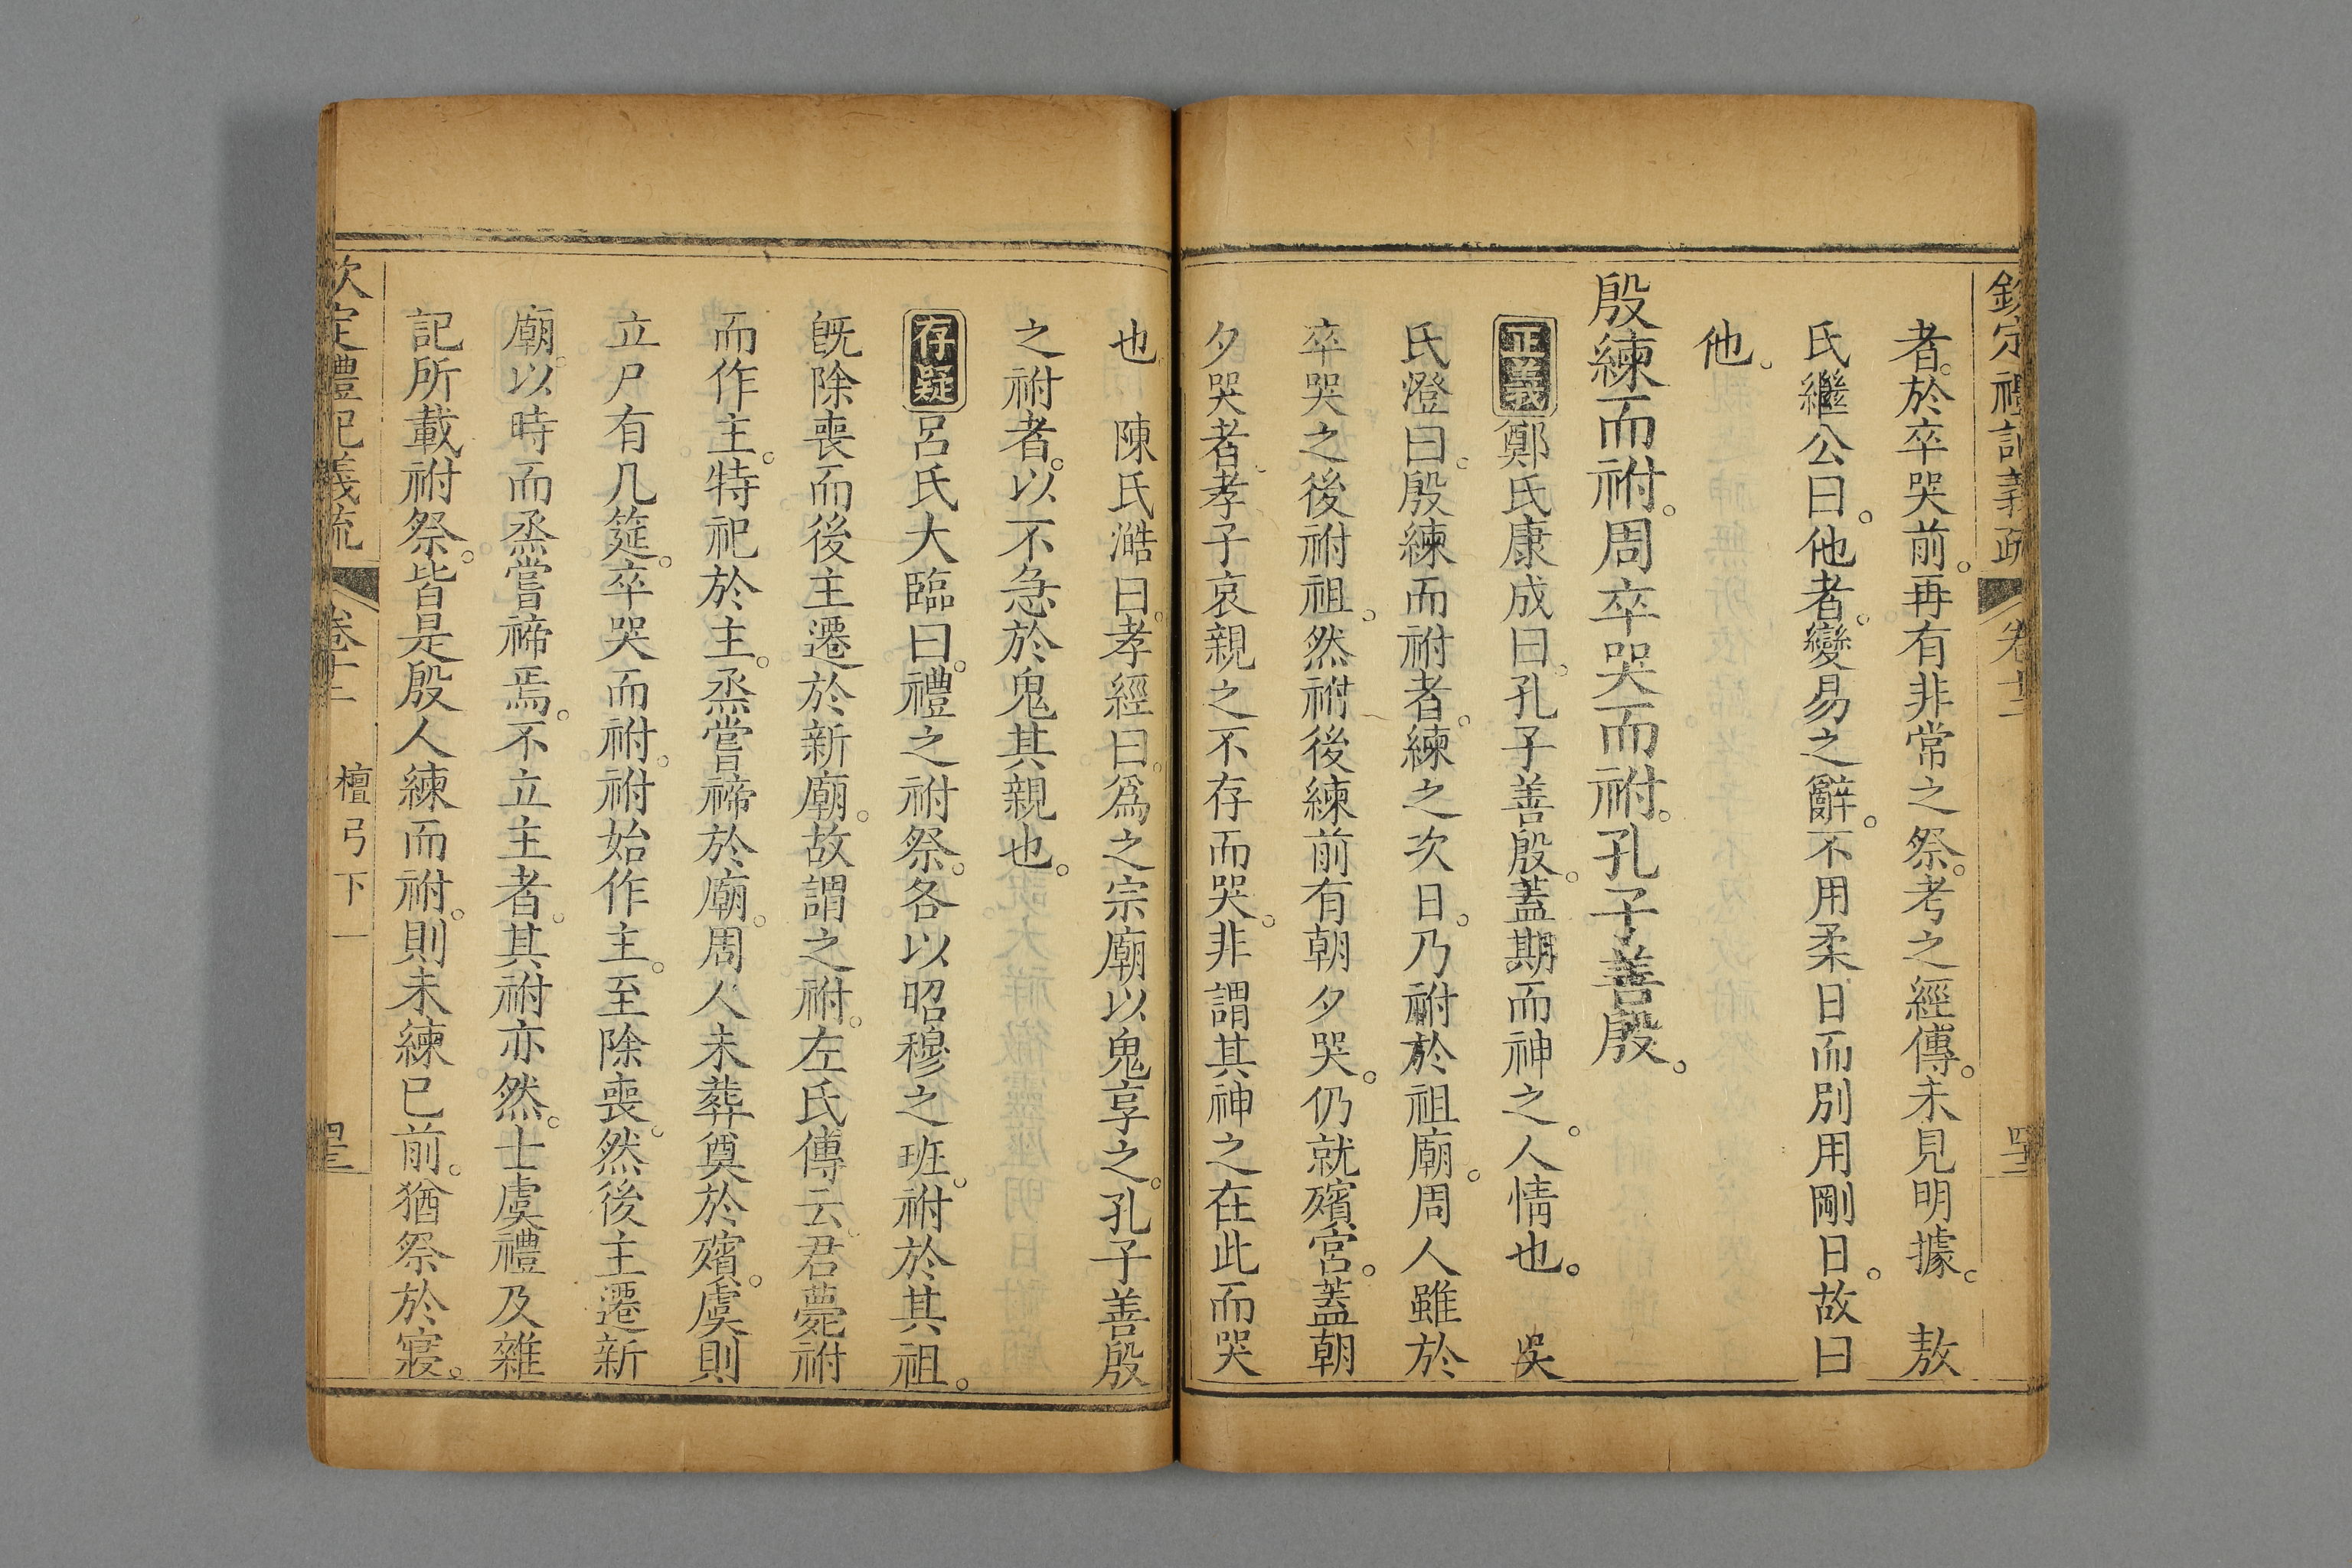 欽定禮記義疏 卷十二 四十二
者。於卒哭前。再有非常之祭。考之經傳。未見明據。 敖
氏繼公曰。他者。變易之辭。不用柔日而別用剛日。故曰
他。
殷練而祔。周卒哭而祔。孔子善殷。
正義 鄭氏康成曰。孔子善殷。蓋期而神之。人情也。 吳
氏澄曰。殷練而祔者。練之次日。乃祔於祖廟。周人雖於
卒哭之後祔祖。然祔後練前有朝夕哭。仍就殯宮。蓋朝
夕哭者。孝子哀親之不存而哭。非謂其神之在此而哭
也 陳氏澔曰。孝經曰。爲之宗廟以鬼享之。孔子善殷
之祔者。以不急於鬼其親也。
存疑 呂氏大臨曰。禮之祔祭。各以昭穆之班。祔於其祖。
旣除喪而後主遷於新廟。故謂之祔。左氏傳云。君薨祔
而作主。特祀於主。烝嘗禘於廟。周人未葬奠於殯。虞則
立尸有几筵。卒哭而祔。祔始作主。至除喪。然後主遷新
廟。以時而烝嘗禘焉。不立主者。其祔亦然。士虞禮及雜
記所載祔祭。皆是殷人練而祔。則未練已前。猶祭於寢。
欽定禮記義疏 卷十二 檀弓下一 四十三